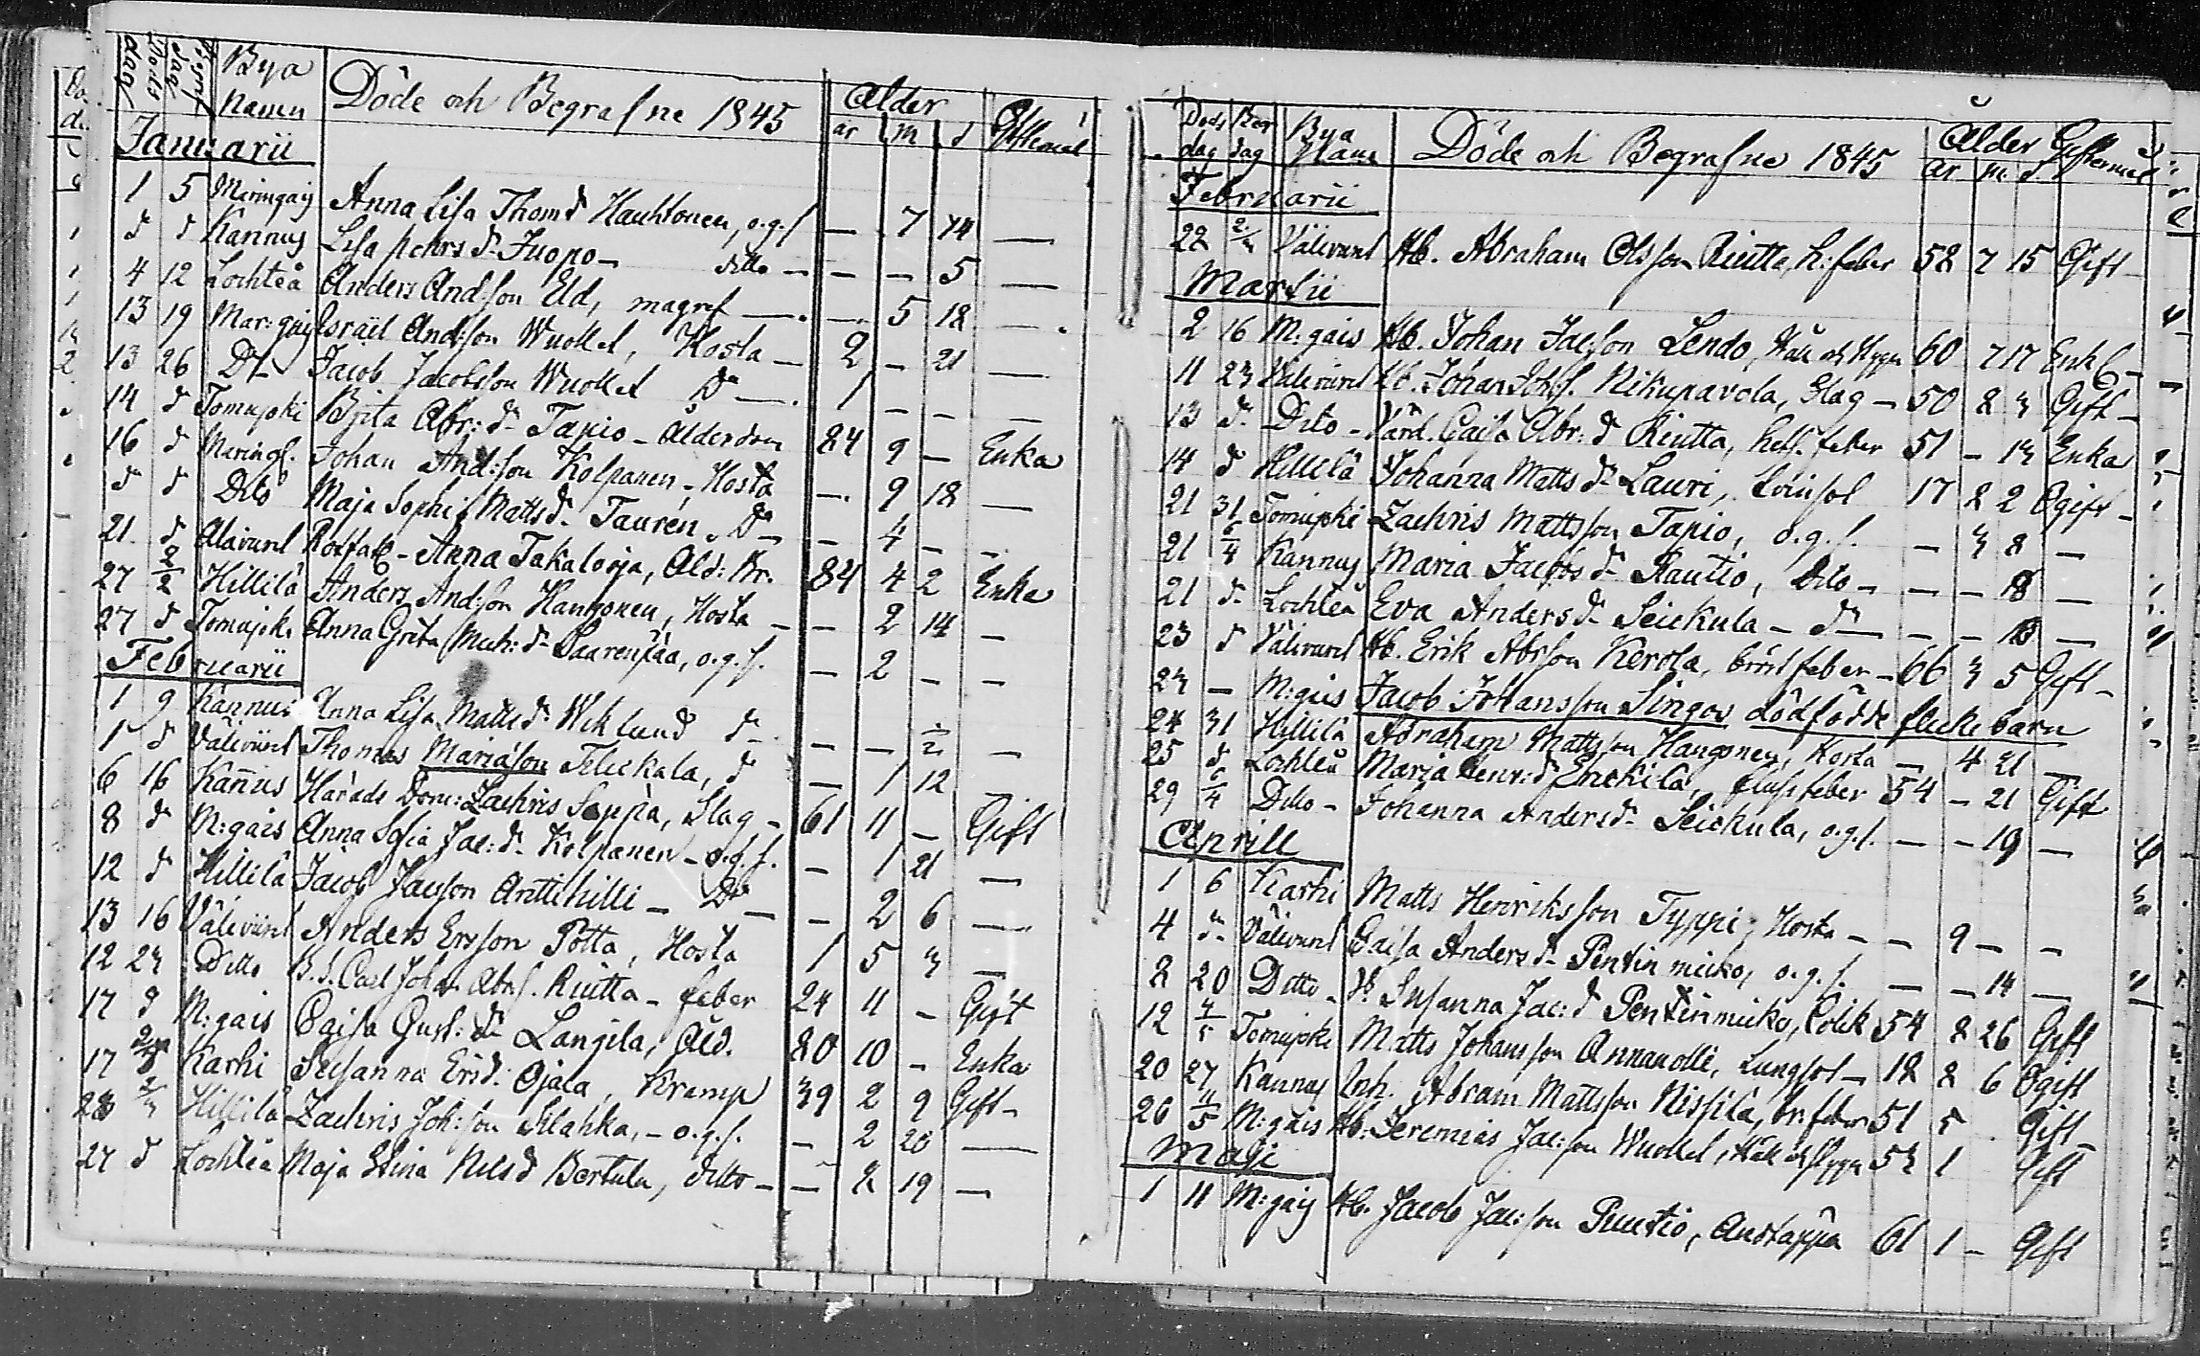 Döds dag Begr dag Bya Namn Döde och Begrafne 1845 Ålder år m d Giftermål
Januarii
1 5 Maringais Anna Lisa Thomd Hauhtonen, o.g.s — 7 14 —
d d Kannus Lisa Pehrsd Juopo — ditto — — — 5 —
4 12 Lochteå Anders Andson Eld, magref — — 5 18 —
13 19 Mar:gais Israël And:son Wuollet, Hosta — 2 — 21 —
13 26 Dt Jacob Jacobsson Wuollet Do — 1 — — —
14 d Tomujoki Brita Abr:d Tapio — Ålderdom 84 9 — Enka
16 d Marings. Johan And:son Kolpanen — Hosta — 9 18 —
d d Dito Maja Sophi Mattsd Taurén, Do — — 4 — —
21 d Alaviirret Anna Takalooja, Åld: Kr. 84 4 2 Enka
27 2/2 Hillilä Anders And:son Hangonen, Hosta — — 2 14 —
27 d Tomujoki Anna Greta Mich:d Saarenpää, o.g.s. — 2 — —
Februarii
1 9 Kannus Anna Lisa Mattsd Wiklund d — — 1/2 —
1 d Väliviirret Thomas Mariason Flickala, d — 1 12 —
6 16 Kannus Härads Dom: Zachris Soppa, Slag — 61 11 — Gift
8 d M:gais Anna Sofia Jac:d Kolpanen — o.g.s. — 1 21 —
12 d Hillilä Jacob Jacsson Anttihilli — Do — — 2 6 —
13 16 Väliviirret Anders Ersson Potta, Hosta 1 5 3 —
12 23 Ditto B.S. Carl Joh. Abrs. Riutta — feber 24 11 — Gift
17 d M:gais Cajsa Gust:d Langila, Åld. 80 10 — Enka
17 Karhi Susanna Ersd: Ojala, Kramp 39 2 9 Gift —
23 2/3 Hillilä Zachris Joh:son Silahka, — o.g.s. — 2 20 —
27 d Lochteå Maja Stina Nilsd Bertula, ditto — — 2 19 —
Döds dag Beg dag Bya Namn Döde och Begrafne 1845 Ålder år m d Giftermål
Februarii
22 2/3 Väliviirret Hb. Abraham Olsson Riutta, h:feber 58 7 15 Gift
Martii
2 16 M:gais Hb. Johan Jac:son Lendo, Håll och Stygn 60 7 17 Enkl —
11 23 Väliviirret Hb. Johan Johs. Nikupavola, Slag — 50 8 3 Gift —
13 d Dito — Vård. Cajsa Abr:d Riutta, hets. feber 51 — 13 Enka
14 d Hillilä Johanna Mattsd Lauri, 17 8 2 Ogift —
21 31 Tomujoki Zachris Mattsson Tapio, o.g.s. — 3 8 —
21 6/4 Kannus Maria Jacobsd Rautio, Dito — — — 18 —
21 d Lochteå Eva Andersd Seickula — d — — — 13 —
23 d Väliviirret Hb. Erik Abrson Kerola, bröstfeber — 66 3 5 Gift —
23 — M:gais Jacob Johansson Singos dödfödde flickebarn
24 31 Hillilä Abraham Mattsson Hangonen, Hosta — 4 21 —
25 d Lochteå Maria Henr:d Knekila, flussfeber 54 — 21 Gift
29 6/4 Dito — Johanna Andersd Seickula, o.g.s. — — 19 —
Aprill
1 6 Karhi Matts Henriksson Typpi, Hosta — — 9 — —
4 d Väliviirret Caisa Andersd Pentinmicko, o.g.s. — — 14 —
8 20 Ditto — Susanna Jac:d Pentinmicko, Colik 54 8 26 Gift
12 4/5 Tomujoki Matts Johansson Annanolli, Lungsot — 18 8 6 Ogift
20 27 Kannus Inh. Abram Mattsson Niskilä, br.feber 51 5 Gift
26 11/5 M:gais Hb: Jeremias Jac:son Wuollet, Håll och Stygn 53 1 Gift
Maji
1 11 M:gais Hb. Jacob Jac:son Puutio, Andtäppa 61 1 — Gift